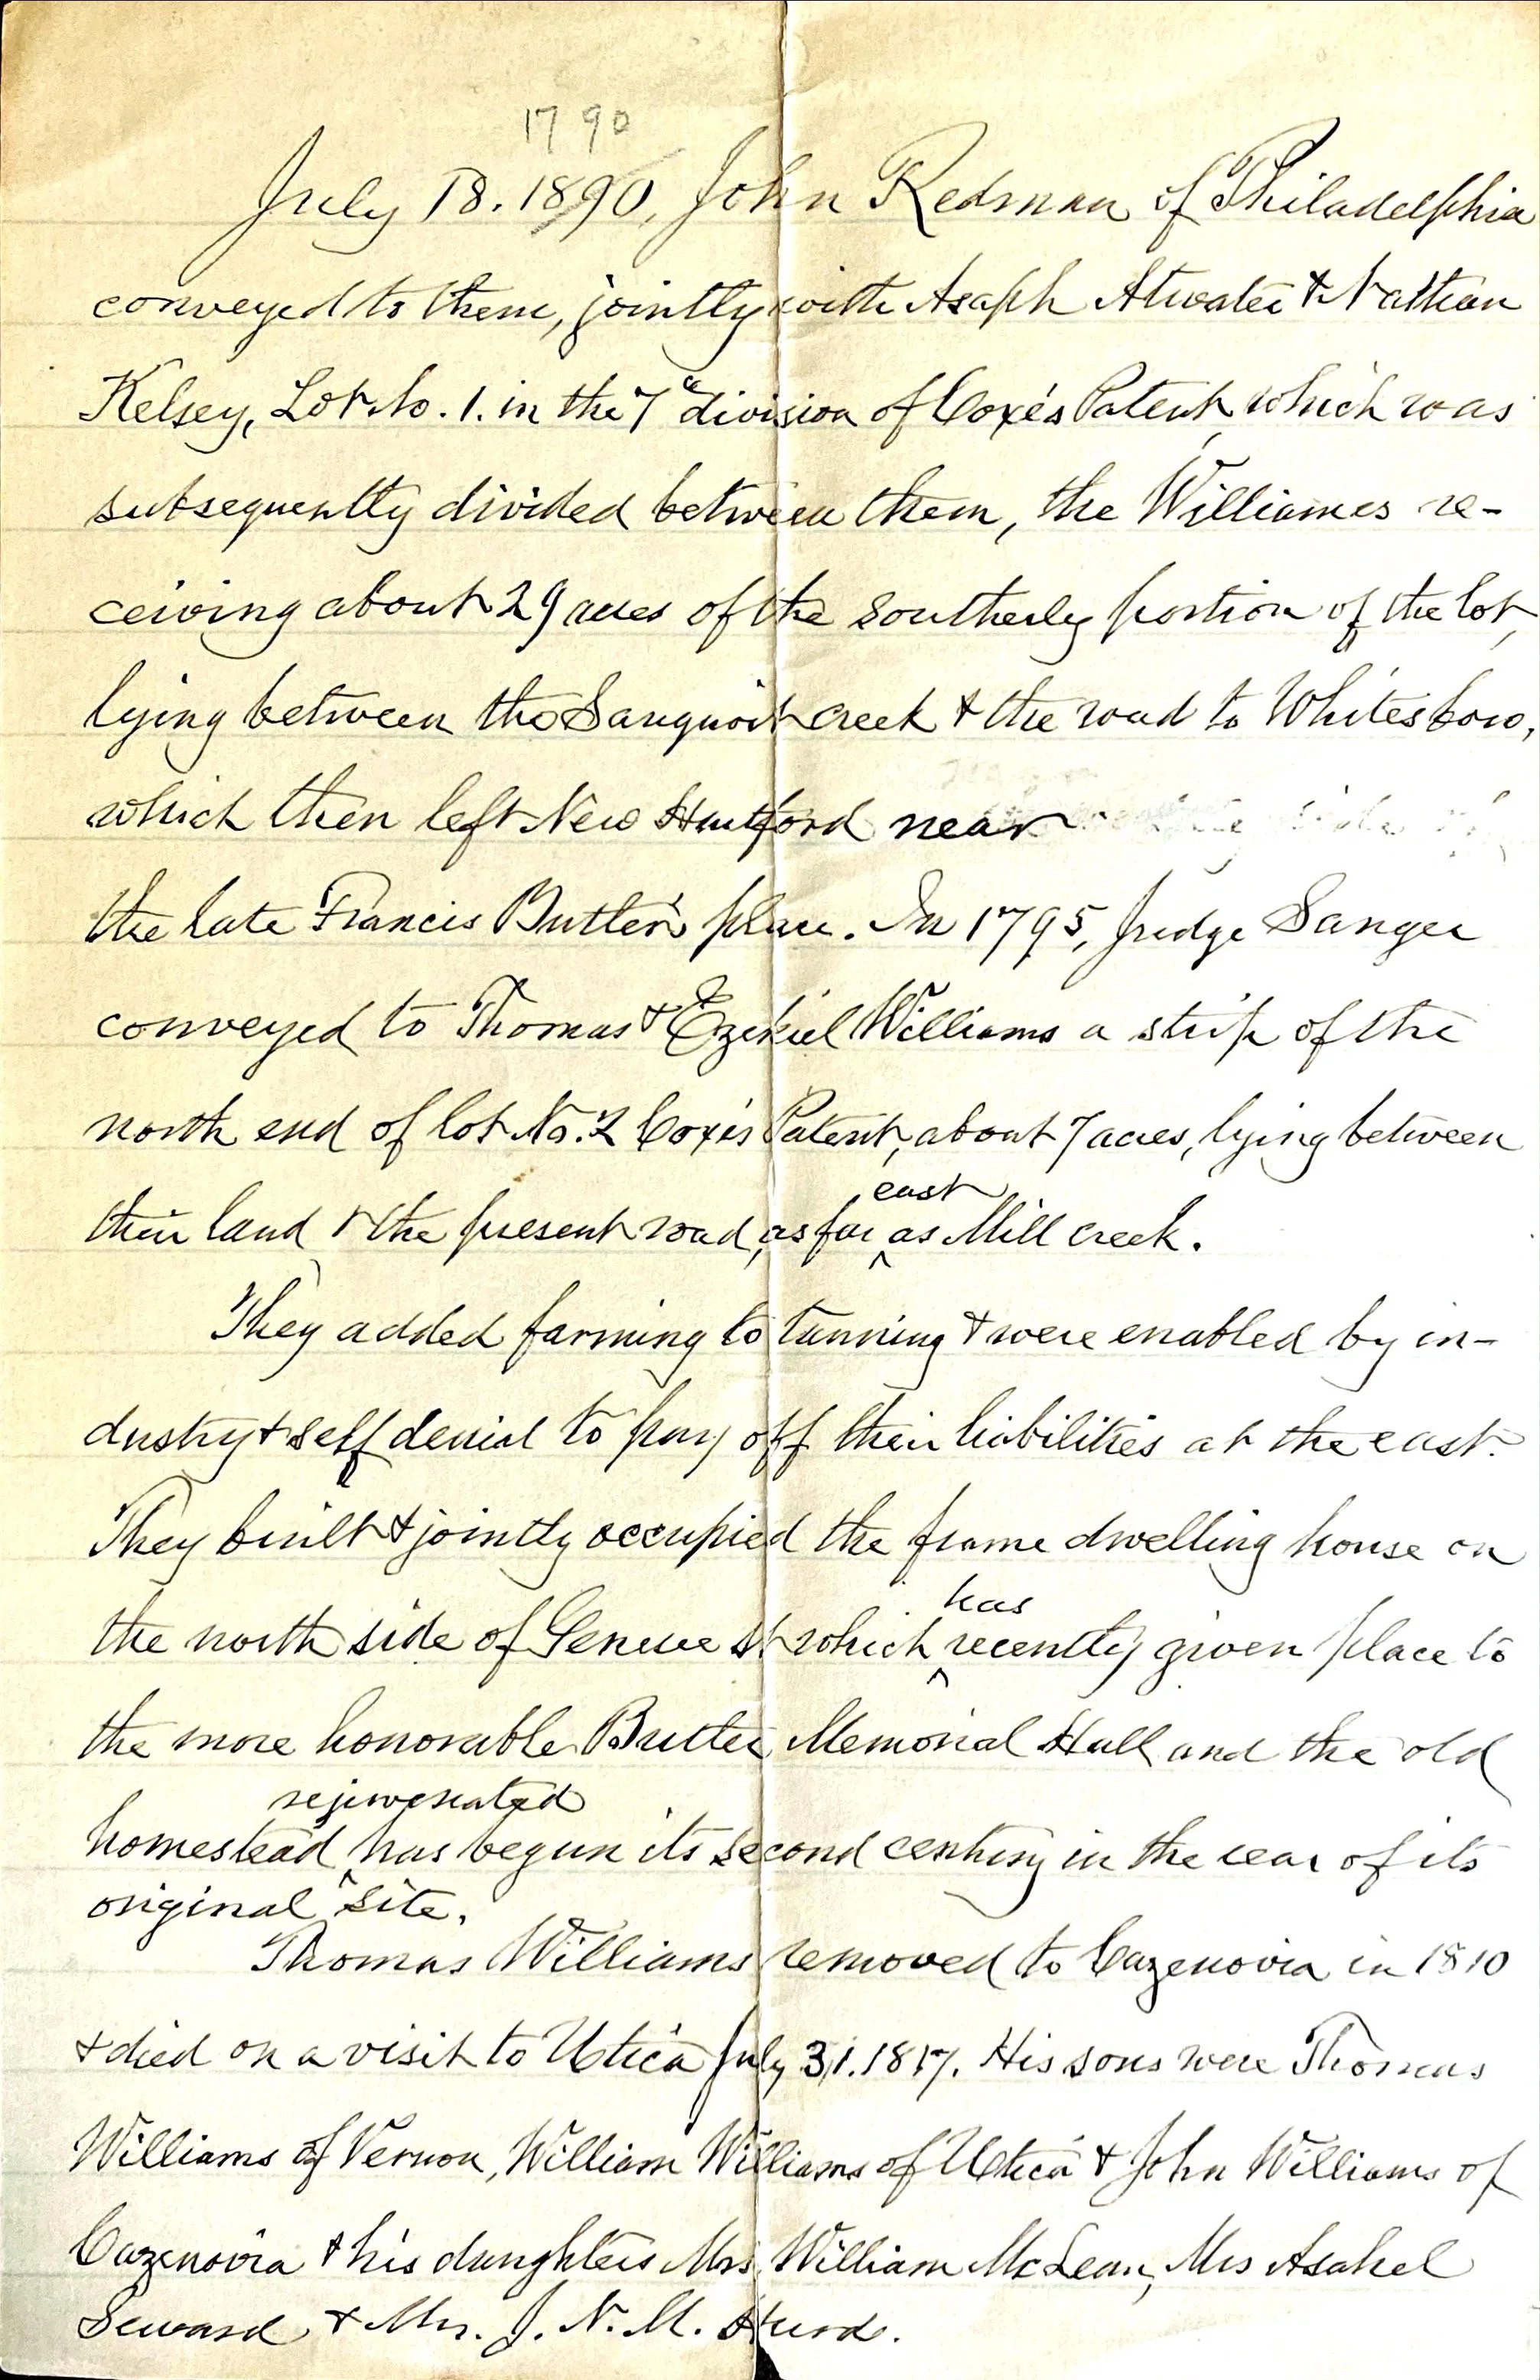 1790
July 18. 1890, John Redman of Philadelphia
conveyed to them, jointly with Asaph Atwater & Nathan
Kelsey, Lot No. 1. in the 7e division of Coxe's Patent, which was
subsequently divided between them, the Williames re-
ceiving about 29 acres of the southerly portion of the lot,
lying between the Sauquoit creek & the road to Whitesboro,
which then left New Hartford near
the late Francis Butler's place. In 1795, Judge Sanger
conveyed to Thomas & Ezekiel Williams a strip of the
north end of lot No. 2 Coxe's Patent, about 7 acres, lying between
east
their land & the present road, as far as Mill creek.
They added farming to tanning & were enabled by in-
dustry & self denial to pay off their liabilities at the east.
They built & jointly occupied the frame dwelling house on
has
the north side of Genesee St which recently given place to
the more honorable Butler Memorial Hall and the old
rejuvenated
homestead has begun its second century in the rear of its
original site.
Thomas Williams removed to Cazenovia in 1810
& died on a visit to Utica July 31. 1817. His sons were Thomas
Williams of Vernon, William Williams of Utica & John Williams of
Cazenovia & his daughters Mrs William McLean, Mrs Asahel
Seward & Mrs. J. N. M. Hurd.